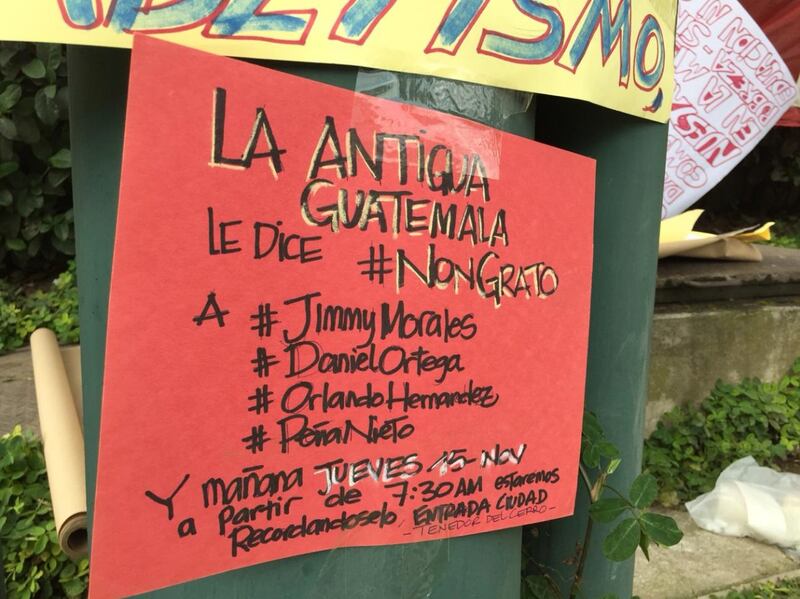 LA ANTIGUA
GUATEMALA
LE DICE #NONGRATO
A #JimmyMorales
#DanielOrtega
#OrlandoHernandez
#PeñaNieto
Y mañana JUEVES 15-NOV
a Partir de 7:30AM estaremos
Recordandoselo, ENTRADA CIUDAD
- TENEDOR DEL CERRO -